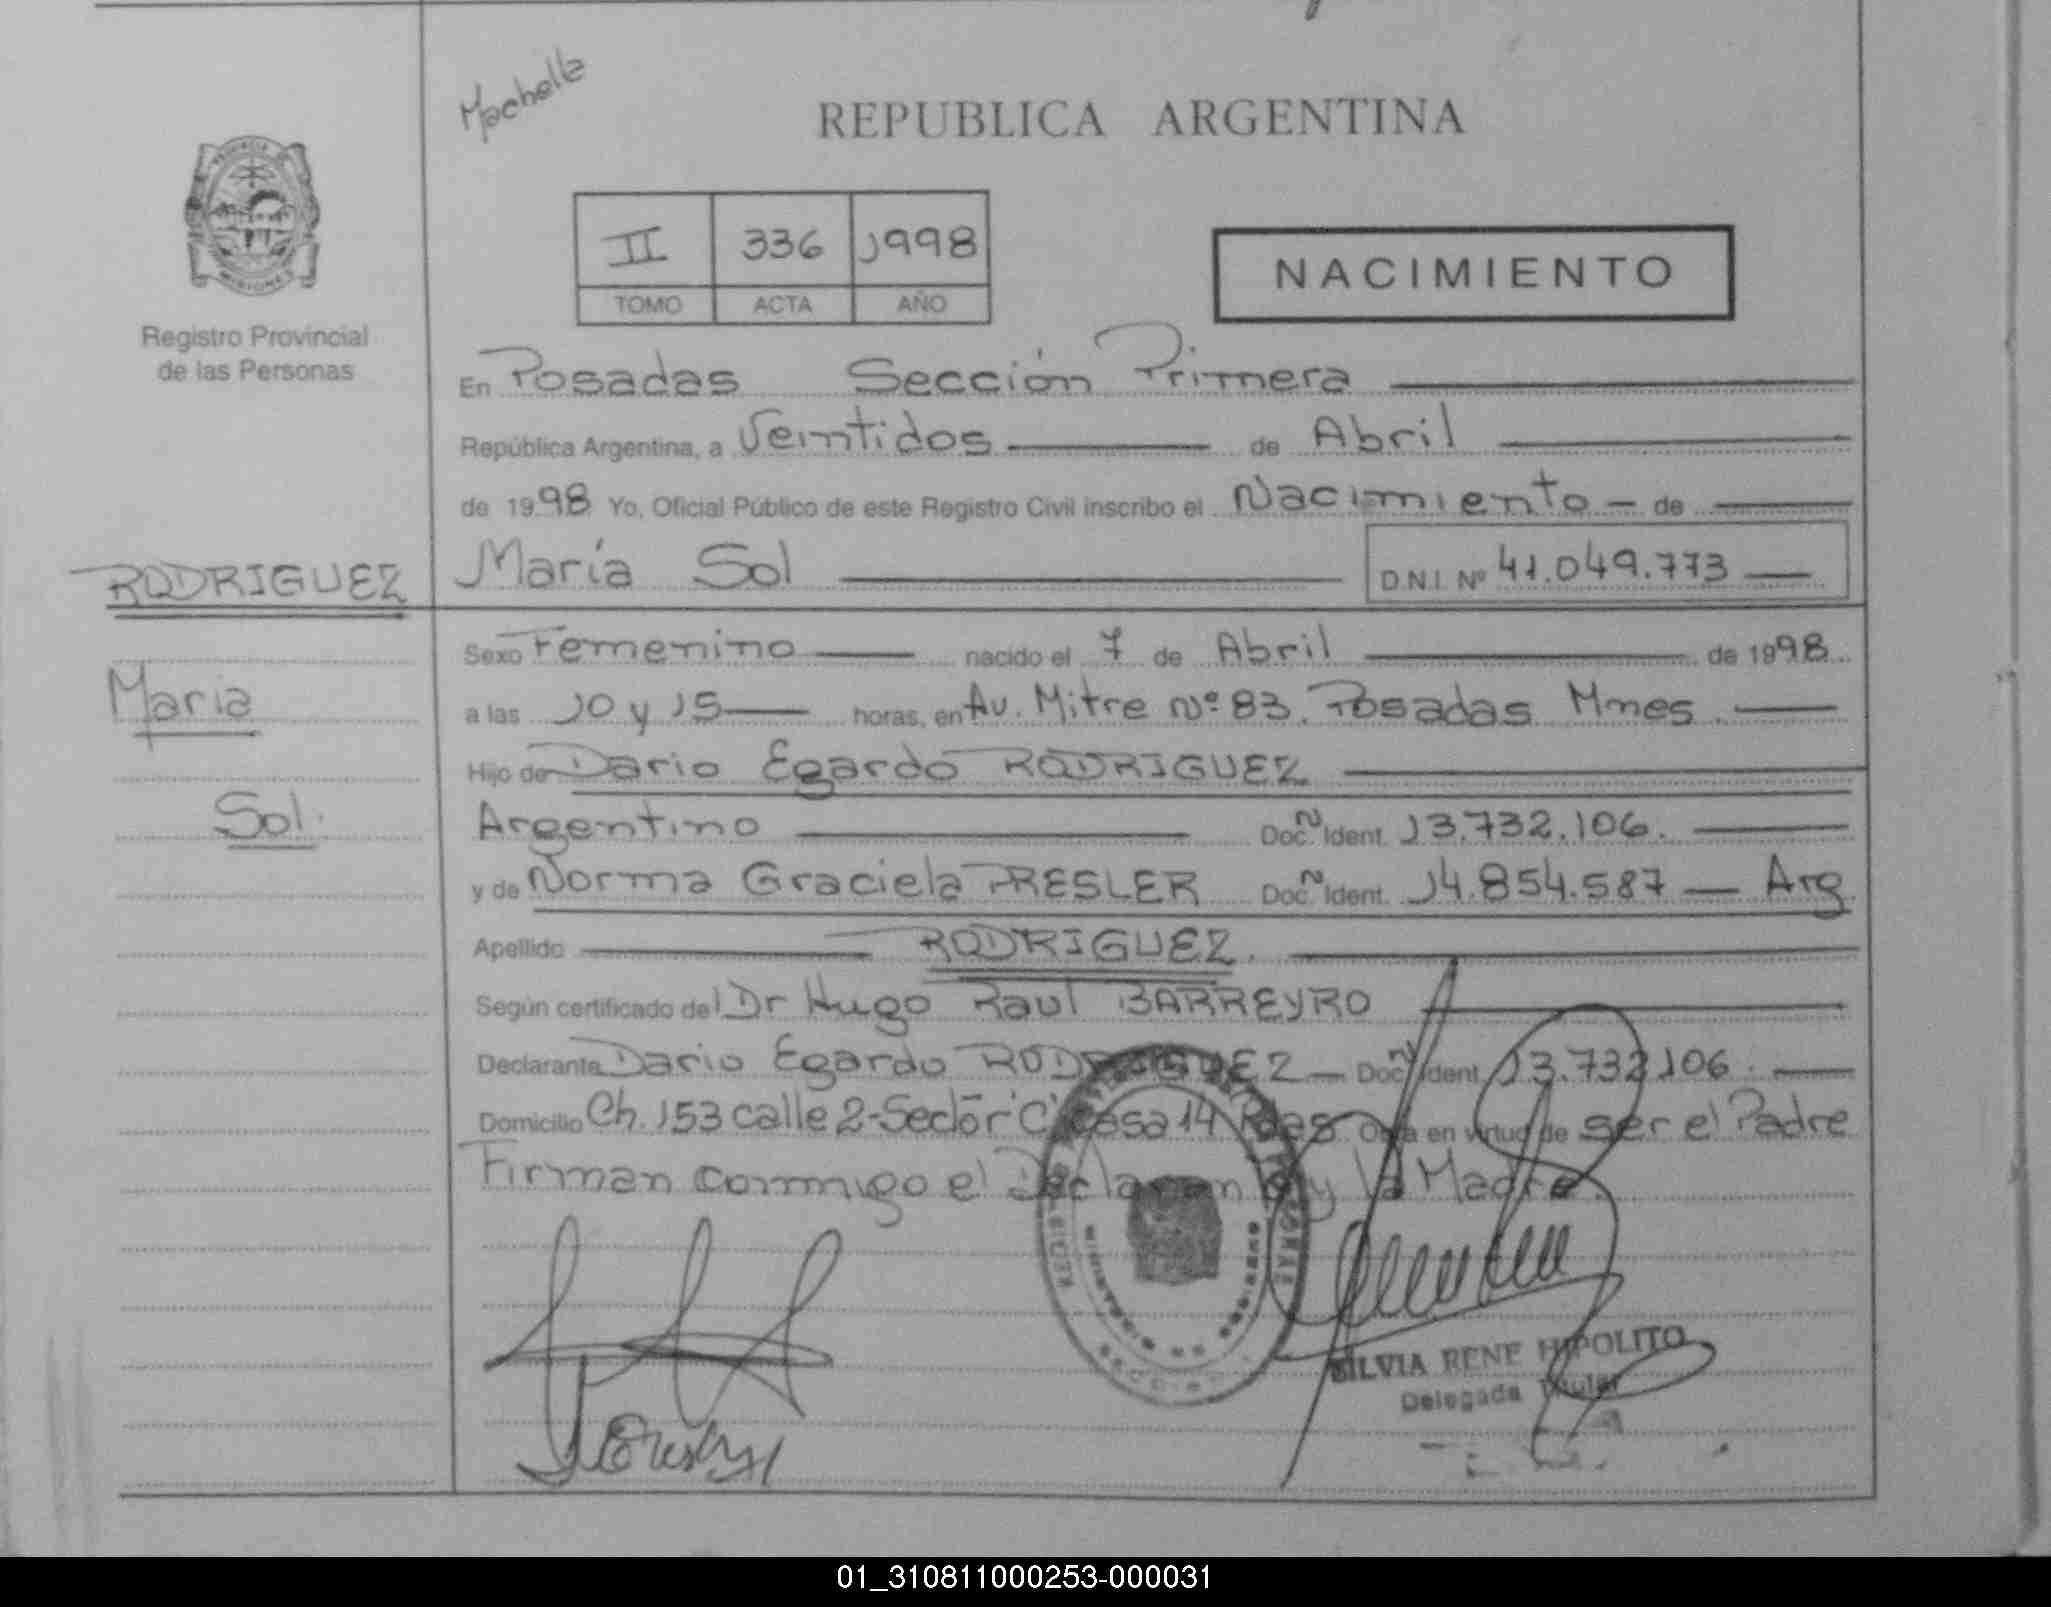 Machelle
REPUBLICA ARGENTINA
PROVINCIA DE MISIONES
Registro Provincial
de las Personas
II 336 1998
TOMO ACTA AÑO
NACIMIENTO
En Posadas Sección Primera
República Argentina, a Veintidos de Abril
de 1998 Yo, Oficial Público de este Registro Civil inscribo el Nacimiento - de
RODRIGUEZ
María Sol
D.N.I. Nº 41.049.773
Sexo Femenino nacido el 7 de Abril de 1998
Maria
a las 10 y 15 horas, en Av. Mitre Nº 83. Posadas Mnes.
Hijo de Dario Egardo RODRIGUEZ
Sol.
Argentino Doc. N Ident. 13.732.106.
y de Norma Graciela PRESLER Doc. N Ident. 14.854.587 — Arg
Apellido RODRIGUEZ.
Según certificado del Dr Hugo Raul BARREYRO
Declarante Dario Egardo RODRIGUEZ — Doc. N Ident. 13.732.106.
Domicilio Ch. 153 calle 2-Sector "C" casa 14 Pdas. Obra en virtud de ser el Padre
Firman conmigo el Declarante y la Madre.
SILVIA RENE HIPOLITO
Delegada Titular
01_310811000253-000031